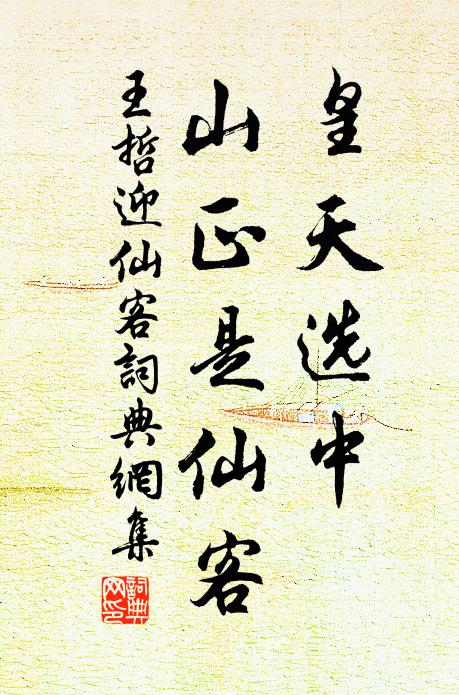 皇天选中
山正是仙客
王哲迎仙客詞典網集
詞典网印